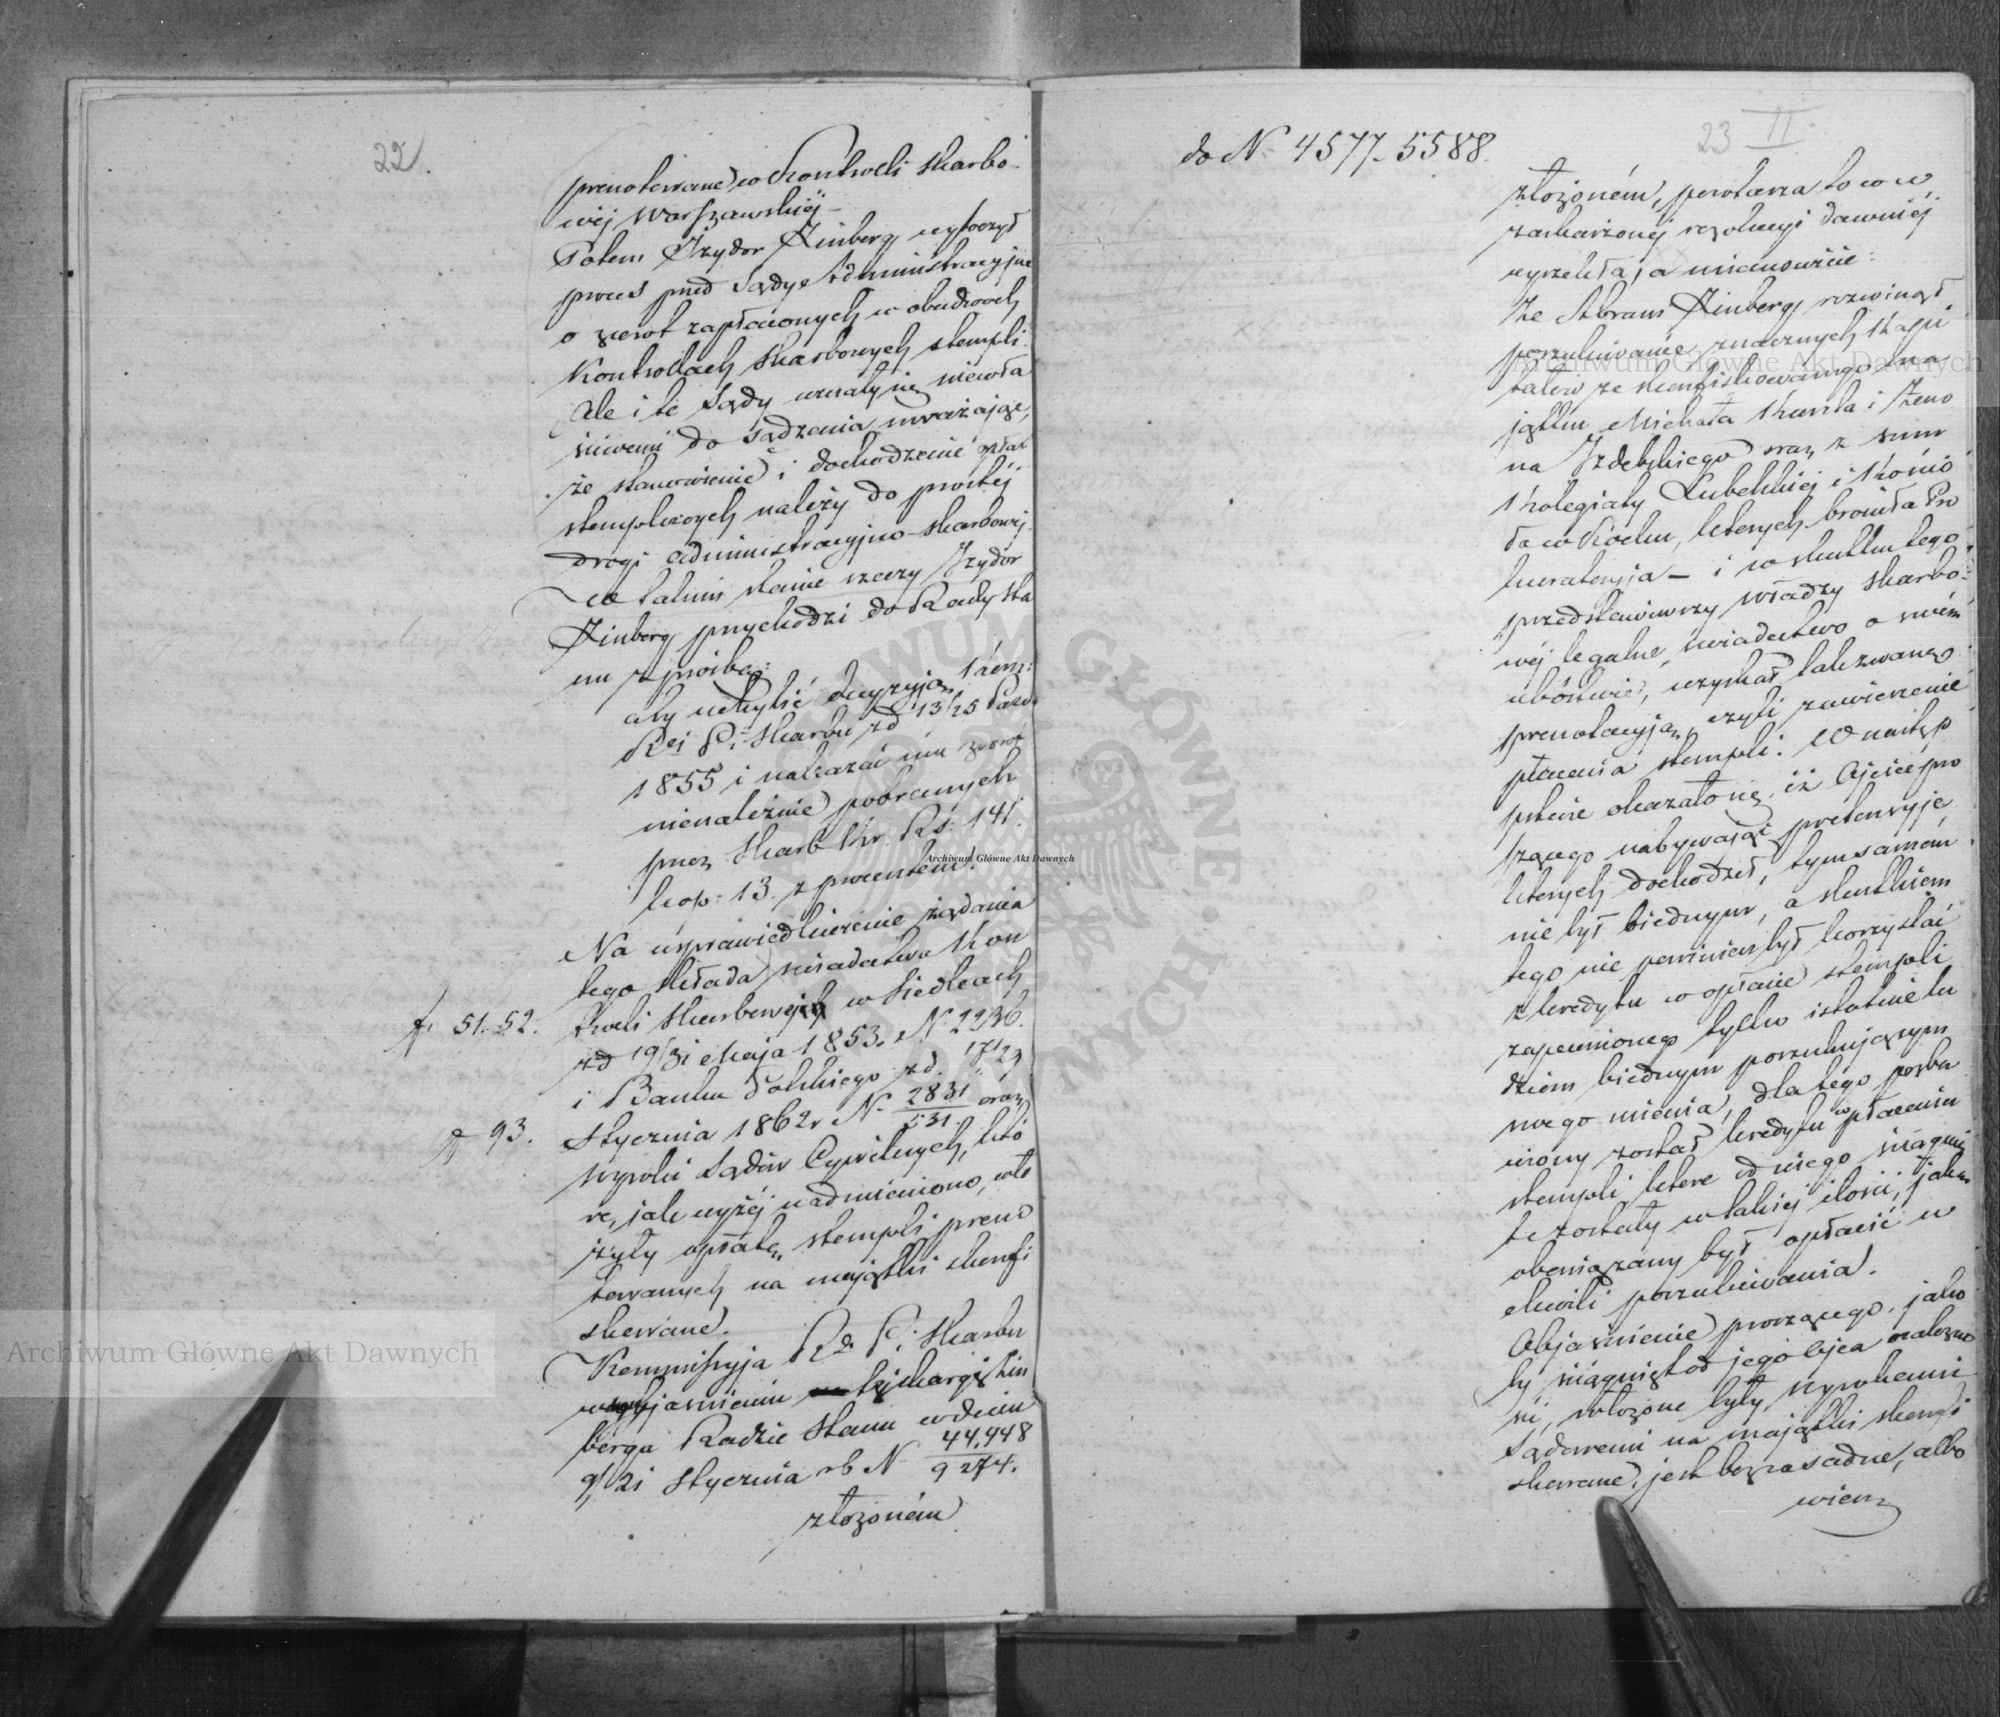 22.
prenotowane w Kontroli Skarbo-
wéj Warszawskiéj –
Potem Izydor Zinberg wytoczył
proces przed Sądy Administracyjne
o zwrot zapłaconych w obudwóch
Kontrollach Skarbowych stempli.
Ale i te Sądy uznały się niewła
ściwemi do sądzenia uważając,
że stanowienie i dochodzenie opłat
stemplowych należy do prostéj
drogi administracyjno-skarbowéj.
W takim stanie rzeczy Izydor
Zinberg przychodzi do Rady Sta
nu z prośbą:
aby uchylić decyzyją Kom:
Rej Pi Skarbu z d 13/25 Paźd
1855 i nakazać mu zwrot
nienależnie pobranych
przez Skarb Kr. Rs: 141.
kop: 13. z procentem.
Na usprawiedliwienie żądania
tego składa świadectwa Kon
f. 51.52. troli Skarbowéj w Siedlcach
z d 19/31 Maja 1853. N. 2236.
i Banku Polskiego z d. 17/29
f 93. Stycznia 1862 r N. 2831/531. oraz
wyroki Sądów Cywilnych, któ
re, jak wyżéj nadmieniono, wło
żyły opłatę stempli preno
towanych na majątki skonfi
skowane.
Kommissyja Ra Pi Skarbu
w objaśnieniu téj skargi Zin
berga Radzie Stanu w dniu
9/21 Stycznia r b N 44,448/9274.
złożoném
do N. 4577-5588.
23 II
złożoném, powtarza to co w
zaskarżonej rezolucyi dawniéj
wyrzekła, a mianowicie:
Że Abram Zinberg rozwinął
poszukiwanie znacznych kapi
tałów ze skonfiskowanego ma
jątku Michała Kunta i Zeno
na Izdebskiego oraz z sum
Kolegiaty Lubelskiéj i Kościo
ła w Kocku, których broniła Pro
kuratoryja – i w skutku tego
przedstawiwszy władzy skarbo-
wéj legalne świadectwo o swém
ubóstwie, uzyskał tak zwaną
prenotacyją, czyli zawieszenie
płacenia stempli. W następ
stwie okazało się, iż Ojciec pro
szącego nabywając pretensyje
których dochodził, tym samém
nie był biednym, a skutkiem
tego nie powinien był korzystać
z kredytu w opłacie stempli
zapewnionego tylko istotnie lu
dziom biednym poszukującym
swego mienia, dla tego pozba
wiony został kredytu w płaceniu
stempli, które od niego ściągnię
te zostały w takiéj ilości, jakie
obowiązany był opłacić w
chwili poszukiwania.
Objaśnienie proszącego, jako
by ściągnięte od jego ojca należno
ści, włożone były wyrokami
Sądowemi na majątki skonfi
skowane, jest bezzasadne, albo
wiem
Archiwum Główne Akt Dawnych
Archiwum Główne Akt Dawnych
Archiwum Główne Akt Dawnych
ARCHIWUM GŁÓWNE AKT DAWNYCH